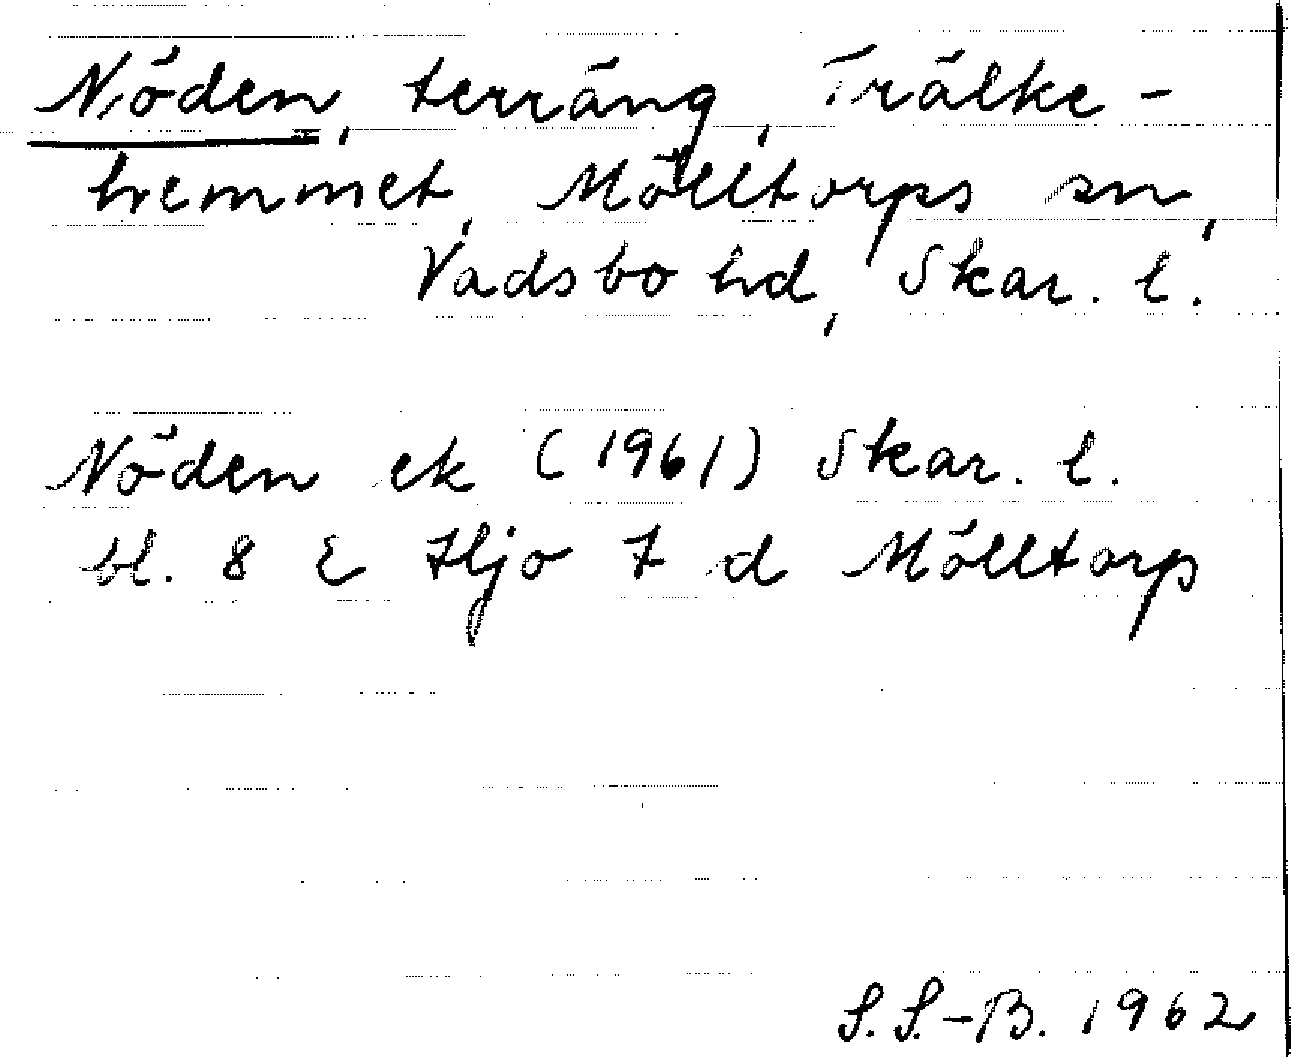 Nöden, terräng, Trälke-
hemmet, Mölltorps sn,
Vadsbo hd, Skar. l.
Nöden ek (1961) Skar. l.
bl. 8 E Hjo 7 d Mölltorp
S. S.-B. 1962